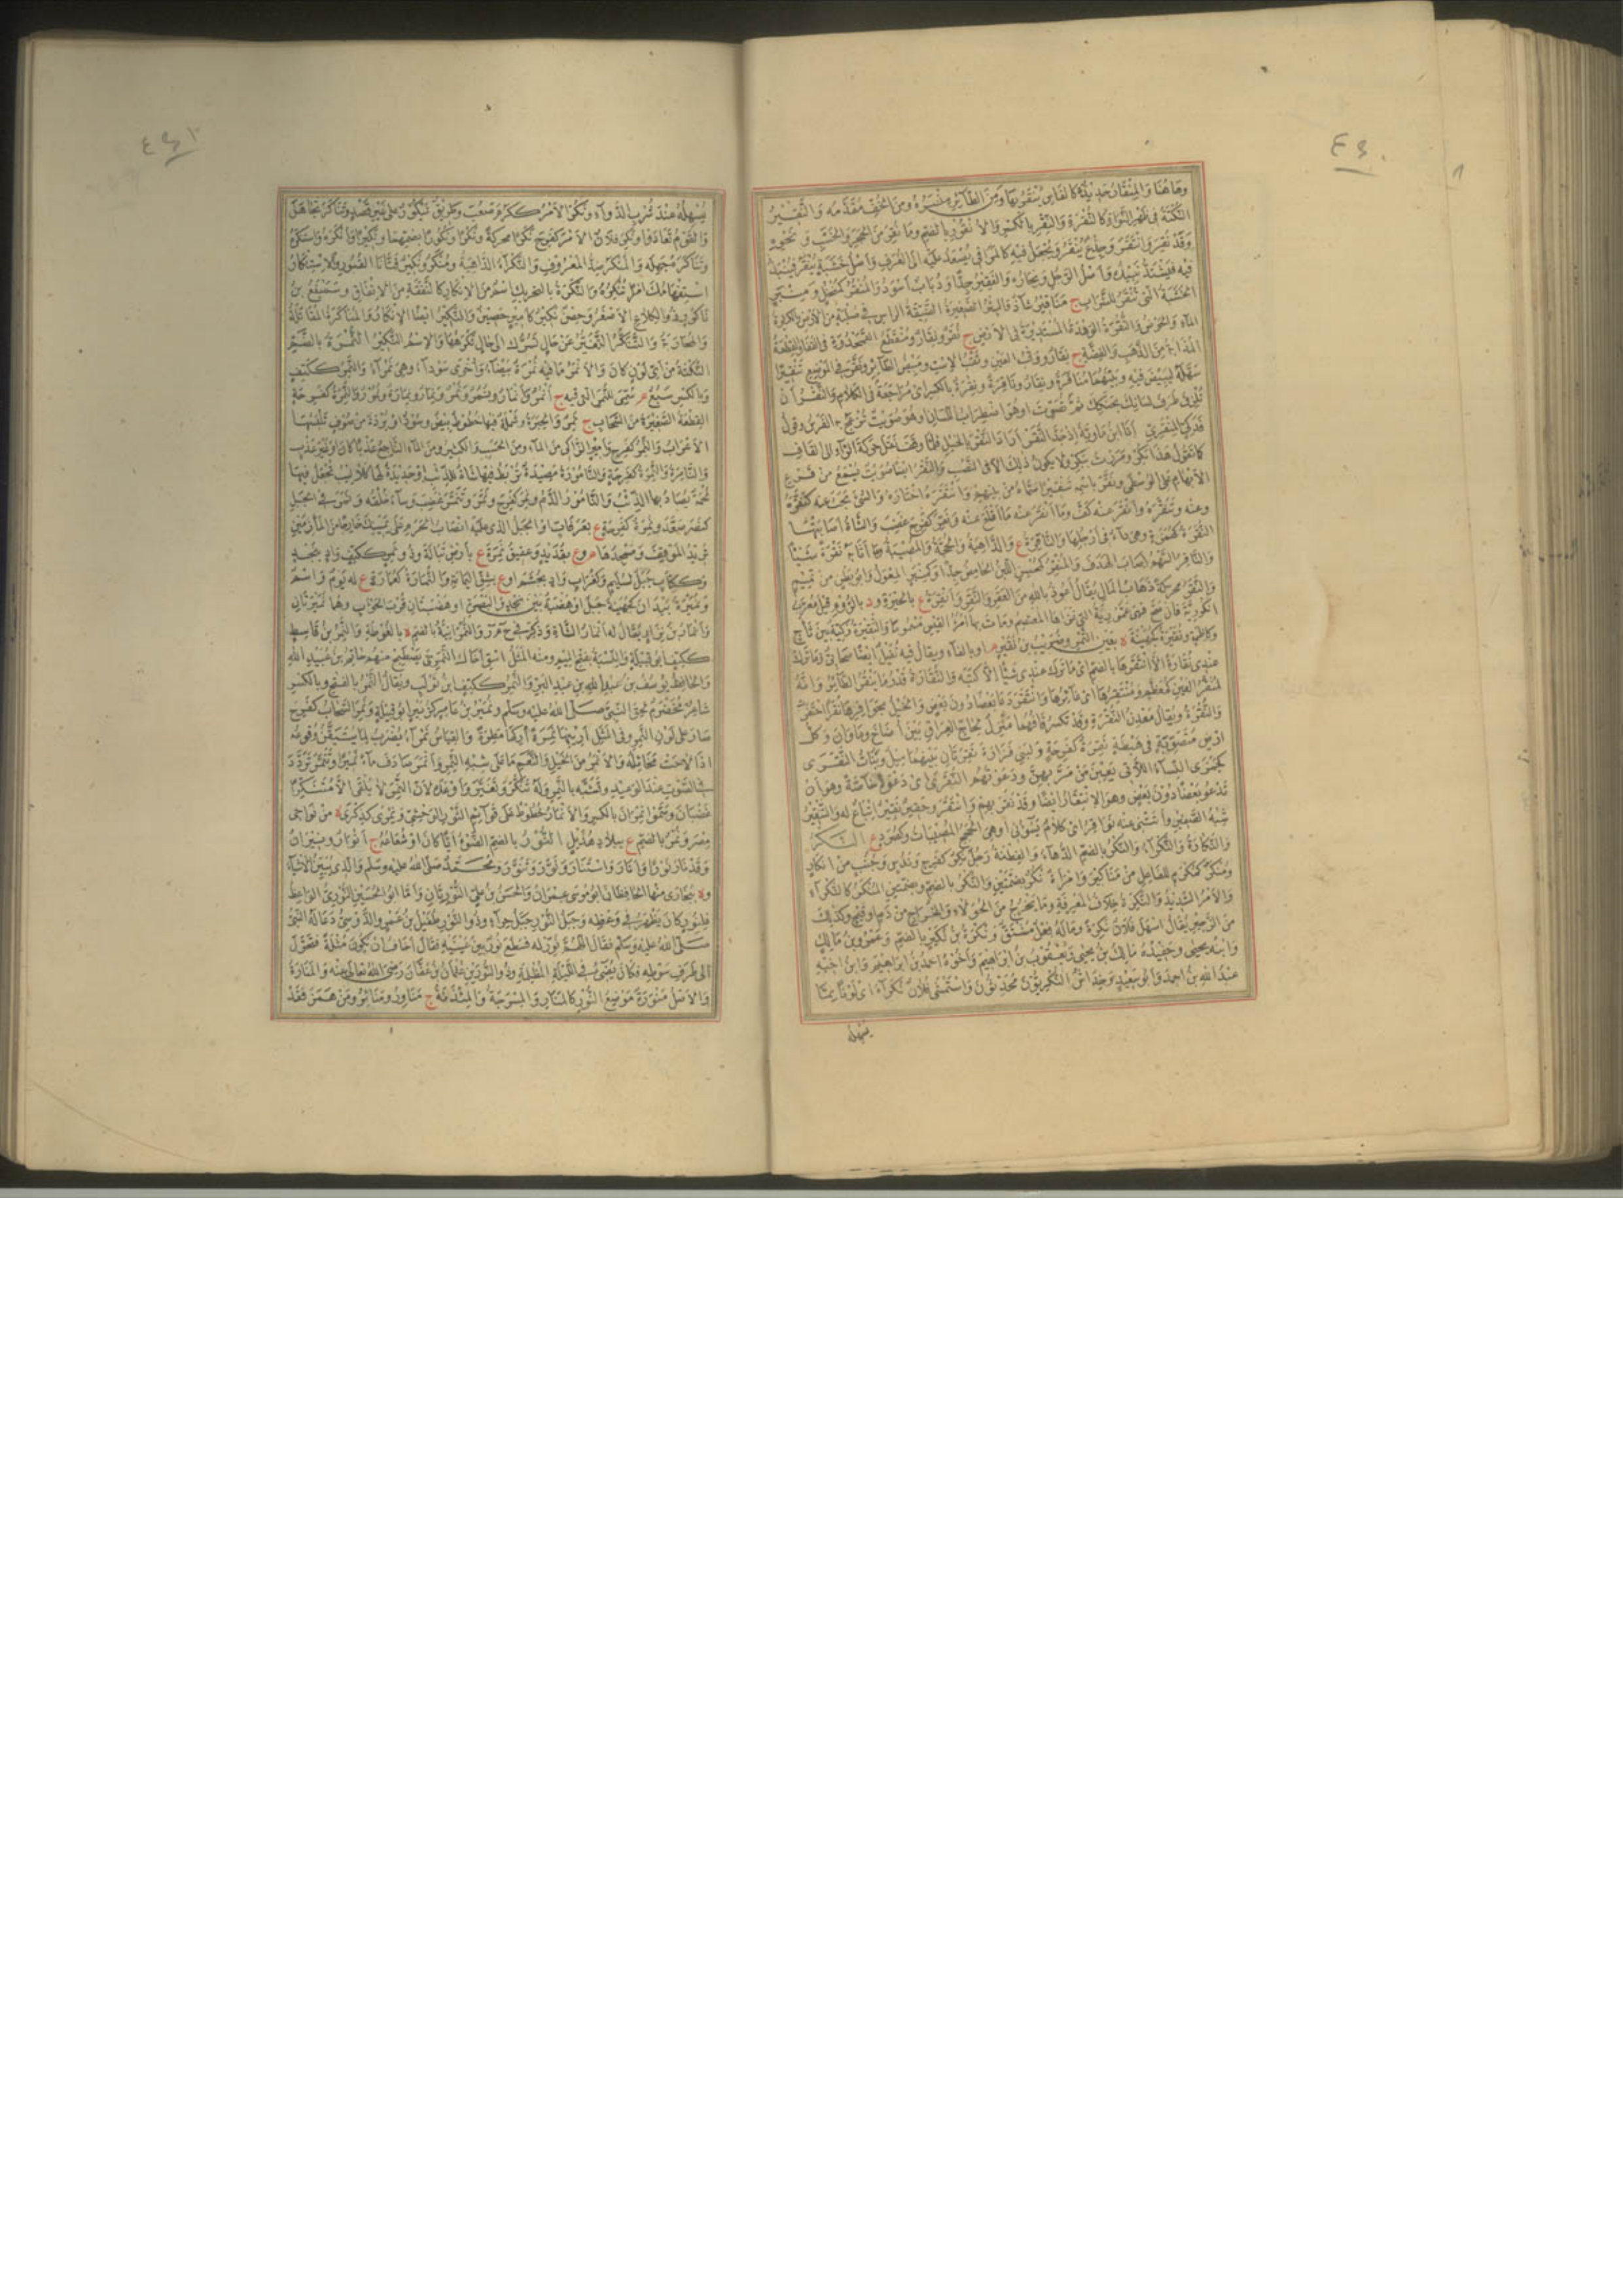 وهاهنا والمنقار حديدة كالفاس ينقر بها ومن الطائر منسره ومن الخف مقدمه والنقير
النكتة في ظهر النواة كالنقرة والنقر بالكسر والانقور بالضم وما نقر من الحجر والخشب ونحوه
وقد نقر وانتقر وجذع ينقر ويجعل فيه كالمراقي يصعد عليه الى الغرف واصل خشبة ينقر فينبذ
فيه فيشتد نبيذه واصل الرجل ونجاره والفقير جدا وذباب اسود والمنقر كمنخل ومنبر
الخشبة التي تنقر للشراب ج مناقير شاذ والبئر الصغيرة الضيقة الراس في صلبة من الارض والكثيرة
الماء والحوض والنقرة الوهدة المستديرة في الارض ج نقر ونقار ومنقطع القمحدوة في القفا والقطعة
المذابة من الذهب والفضة ج نقار ووقب العين وثقب الاست ومبيض الطائر ونقر في الموضع تنقيرا
سهله ليبيض فيه وبينهما مناقرة ونقار وناقرة ونقرة بالكسر اي مراجعة في الكلام والنقر ان
تلزق طرف لسانك بحنكك ثم تصوت او هو اضطراب اللسان وهو صويت تزعج به الفرس وقول
فدكي المنقري انا ابن ماوية اذ جد النقر اراد النقر بالخيل فلما وقف نقل حركة الراء الى القاف
كما تقول هذا بكر ومررت ببكر ولا يكون ذلك الا في النصب والنقر ايضا صويت يسمع من قرع
الابهام على الوسطى ونقر باسمه تنقيرا سماه من بينهم وانتقره اختاره والشيء بحث عنه كنقره
وعنه وتنقره وانقر عنه كف وما انقر عنه ما اقلع عنه ونقر كفرح غضب والشاة اصابتها
النقرة كهمزة وهي داء في ارجلها والناقرة ع والداهية والحجة والمصيبة وما اثابه نقرة شيئا
والناقر السهم اصاب الهدف والمنقر كمحسن اللبن الحامض جدا وكمنبر المعول وابو بطن من تميم
والنقر محركة ذهاب المال يقال اعوذ بالله من العقر والنقر وانقرة ع بالحيرة ود بالروم وقيل معرب
انكورية فان صح فهي عمورية التي غزاها المعتصم ومات بها امرؤ القيس مسموما والنقيرة ركية بين ثاج
وكاظمة ونقيرة كجهينة ة بعين التمر وضريب بن نقير او بالفاء ويقال فيه نفيل ايضا صحابي وما ترك
عندي نقارة الا انتقرها بالضم اي ما ترك عندي شيئا الا كتبه والنقارة قدر ما ينقر الطائر وانه
لمنقر العين كمعظم ومنتقرها اي غائرها وانتقر دعا بعضا دون بعض والخيل بحوافرها نقرا احتفرت
والنقرة ويقال معدن النقرة وقد تكسر قافهما منزل لحاج العراق بين اضاخ وماوان وكل
ارض متصوبة في هبطة نقرة كفرحة ولبني فزارة نقرتان بينهما ميل وبنات النقرى
كجمزى النساء اللاتي يعبن من مر بهن ودعوتهم النقرى اي دعوة خاصة وهو ان
تدعو بعضا دون بعض وهو الانتقار ايضا وقد نقر بهم وانتقر وحقير نقير اتباع له والتنقير
شبه الصفير واتتني عنه نواقر اي كلام يسوءني او هي الحجج المصيبات وكصرد ع النكر
والنكارة والنكراء والنكر بالضم الدهاء والفطنة رجل نكر كفرح وندس وجنب من انكار
ومنكر كمكرم للفاعل من مناكير وامراة نكر بضمتين والنكر بالضم وبضمتين المنكر كالنكراء
والامر الشديد والنكرة خلاف المعرفة وما يخرج من الحولاء والخراج من دم او قيح وكذلك
من الزحير يقال اسهل فلان نكرة وماله فعل مشتق ونكرة بن لكيز بالضم وعمرو بن مالك
وابنه يحيى وحفيده مالك بن يحيى ويعقوب بن ابراهيم واخوه احمد بن ابراهيم وابن اخيه
عبد الله بن احمد وابو سعيد وخداش النكريون محدثون واستمشى فلان نكراء اي لونا مما
يسهله
يسهله عند شرب الدواء ونكر الامر ككرم صعب وطريق ينكور على غير قصد وتناكر تجاهل
والقوم تعادوا ونكر فلان الامر كفرح نكرا محركة ونكرا ونكورا بضمهما ونكيرا وانكره واستنكره
وتناكره جهله والمنكر ضد المعروف والنكراء الداهية ومنكر ونكير فتانا القبور والاستنكار
استفهامك امرا تنكره والنكرة بالتحريك اسم من الانكار كالنفقة من الانفاق وسميفع بن
ناكور ذو الكلاع الاصغر وحصن نكير كامير حصين والنكير ايضا الانكار والمناكرة المقاتلة
والمحاربة والتنكر التغير عن حال تسرك الى حال تكرهها والاسم النكير النمرة بالضم
النكتة من اي لون كان والانمر ما فيه نمرة بيضاء واخرى سوداء وهي نمراء والنمر ككتف
وبالكسر سبع م سمي للنمر التي فيه ج انمر وانمار ونمر ونمر ونمار ونمارة ونمورة والنمرة كفرحة
القطعة الصغيرة من السحاب ج نمر والحبرة وشملة فيها خطوط بيض وسود او بردة من صوف تلبسها
الاعراب والنمر كفرح وامير الزاكي من الماء ومن الحسب والكثير ومن الماء الناجع عذبا كان او غير عذب
والنامرة والنمرة كفرحة والنامورة مصيدة تربط فيها شاة للذئب او حديدة لها كلاليب تجعل فيها
لحمة يصاد بها الذئب والنامور الدم ونمر كفرح ونمر وتنمر غضب وساء خلقه ونمر في الجبل
كنصر صعد ونمرة كفرحة ع بعرفات او الجبل الذي عليه انصاب الحرم على يمينك خارجا من المازمين
تريد الموقف ومسجدها م وع بقديد وعقيق نمرة ع بارض تبالة وذو نمر ككتف واد بنجد
وككتاب جبل لسليم وكغراب واد بجشم او ع بشق اليمامة والنمارة كعمارة ع له يوم واسم
ونميرة بيدان كجهينة جبل او هضبة بين نجد والبصرة او هضبتان قرب الحواب وهما نميرتان
وانمار بن نزار يقال له انمار الشاة وذكر في ح م ر والنمرانية بالضم ة بالغوطة والنمر بن قاسط
ككتف ابو قبيلة والنسبة بفتح الميم ومنه المثل اسق اخاك النمري يصطبح منهم حاتم بن عبيد الله
والحافظ يوسف بن عبد الله بن عبد البر والنمر ككتف ابن تولب ويقال النمر بالفتح وبالكسر
شاعر مخضرم لحق النبي صلى الله عليه وسلم ونمير بن عامر كزبير ابو قبيلة ونمر السحاب كفرح
صار على لون النمر وفي المثل ارنيها نمرة اركها مطرة والقياس نمراء يضرب لما يتيقن وقوعه
اذا لاحت مخائله والانمر من الخيل والنعم ما على شبه النمر وانمر صادف ماء نميرا وتنمر تمدد
في الصوت عند الوعيد وتشبه بالنمر وله تنكر وتغير واوعده لان النمر لا يلقى الا متنكرا
غضبان وسموا نمران بالكسر والانمار خطوط على قوائم الثور الوحشي ونمرى كذكرى ة من نواحي
مصر ونمر بالضم ع ببلاد هذيل النور بالضم الضوء ايا كان او شعاعه ج انوار ونيران
وقد نار نورا وانار واستنار ونور وتنور ومحمد صلى الله عليه وسلم والذي يبين الاشياء
وة ببخارى منها الحافظان ابو موسى عمران والحسن بن علي النوريان واما ابو الحسين النوري الواعظ
فلنور كان يظهر في وعظه وجبل النور جبل حراء وذو النور طفيل بن عمرو الدوسي دعا له النبي
صلى الله عليه وسلم فقال اللهم نور له فسطع نور بين عينيه فقال اخاف ان تكون مثلة فتحول
الى طرف سوطه فكان يضيء في الليلة المظلمة وذو النورين عثمان بن عفان رضي الله تعالى عنه والمنارة
والاصل منورة موضع النور كالمنار والمسرجة والمئذنة ج مناور ومنائر ومن همز فقد